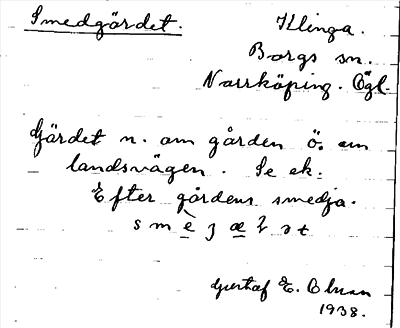 Smedgärdet.
Klinga.
Borgs sn.
Norrköping. Ögl.
Gärdet n. om gården ö. om
landsvägen. Se ek.
Efter gårdens smedja.
Gustaf E.
1938.